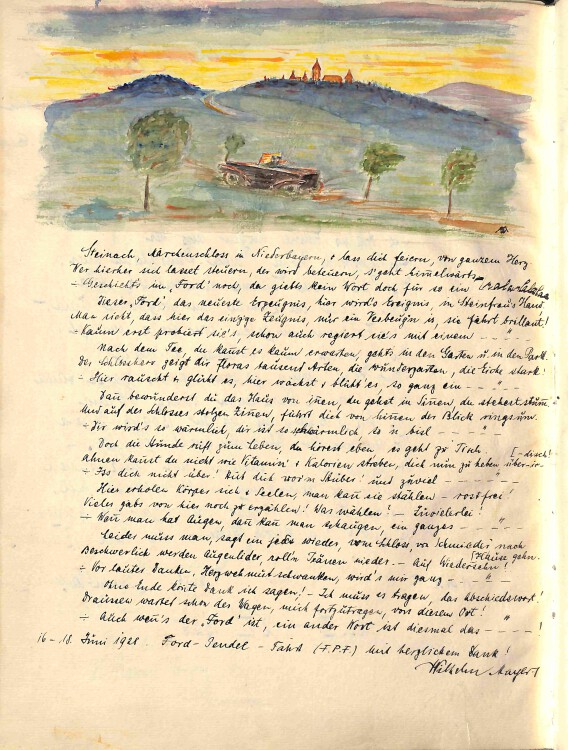 Steinach, Märchenschloss in Niederbayern, o lass dich feiern, von ganzem Herz
Wer hierher sich lasset steuern, der wird beteuern, s'geht himmelwärts
÷ Geschieht's im „Ford" noch, da giebts kein Wort doch für so ein
Dieser „Ford", das neueste Erzeugnis, hier wird's Ereignis, in Steinhaus' Hand
Man sieht, dass hier das einzige Zeugnis, nur ein Verbeugnis is, sie fährt brillant!
÷ Kaum erst probiert sie's, schon auch regiert sie's mit einem — — " —
Nach dem Tee, du kannst es kaum erwarten, geht's in den Garten u. in den Park
Der Schlossherr zeigt dir Floras tausend Arten, die wundergarten, die Eiche stark!
÷ Hier rauscht & glüht es, hier wächst & blüht es, so ganz ein — — " —
Dann bewunderst du das Haus von innen, du gehst in Sinnen, du stehest stumm.
Und auf des Schlosses stolzen Zinnen, führt dich von hinnen der Blick ringsum.
÷ Dir wird's so wärmlich, dir ist so schwärmlich so 'n bisl — — " —
Doch die Stunde ruft zum Leben, du hörest eben es geht zu Tisch.
Ahnen kannst du nicht wie Vitamin' & Kalorien streben, dich nun zu heben über-ir-
[-disch!
÷ Iss dich nicht über! und zuviel — — — " —
Hier erholen Körper sich & Seelen, man kann sie stählen – rostfrei!
Vieles gäbs von hier noch zu erzählen! Was wählen? – Zuvielerlei!
÷ Wenn man hat Augen, dann kann man schaugen, ein ganzes — — " —
Leider muss man, sagt ein jeder wieder, vom Schloss, von Schmieder nach
[Hause gehn.
Beschwerlich werden Augenlider, roll'n Tränen nieder. – Auf Wiedersehn!
÷ Vor lauter Danken, Herzwehmutschwanken, wird's mir ganz — — " —
Ohne Ende könnte Dank ich sagen! – Ich muss es tragen, das Abschiedswort!
Draussen wartet schon der Wagen, mich fortzutragen, von diesem Ort!
÷ Auch wenn's der „Ford" ist, ein ander Wort ist diesmal das — — " — !
16–18. Juni 1928 Ford-Pendel-Fahrt (F.P.F) mit herzlichem Dank!
Wilhelm